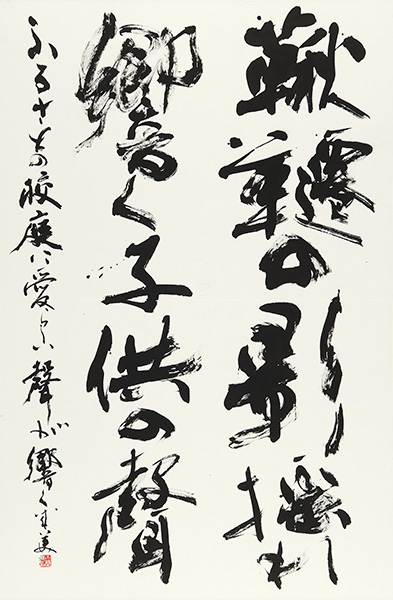 鞦韆の影揺れ
響く子供の聲
ふるさとの校庭に愛らしい聲が響く